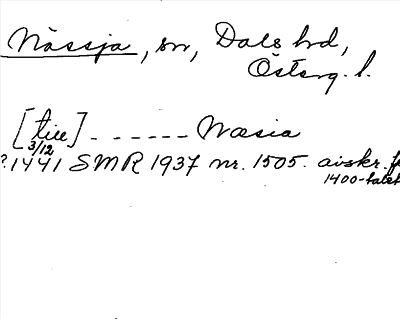 Nässja, sn, Dals hd,
Östерg. l.
[till] - - - - - - Næsia
3/12
?.1441 SMR 1937 nr. 1505. avskr. fr
1400-talet